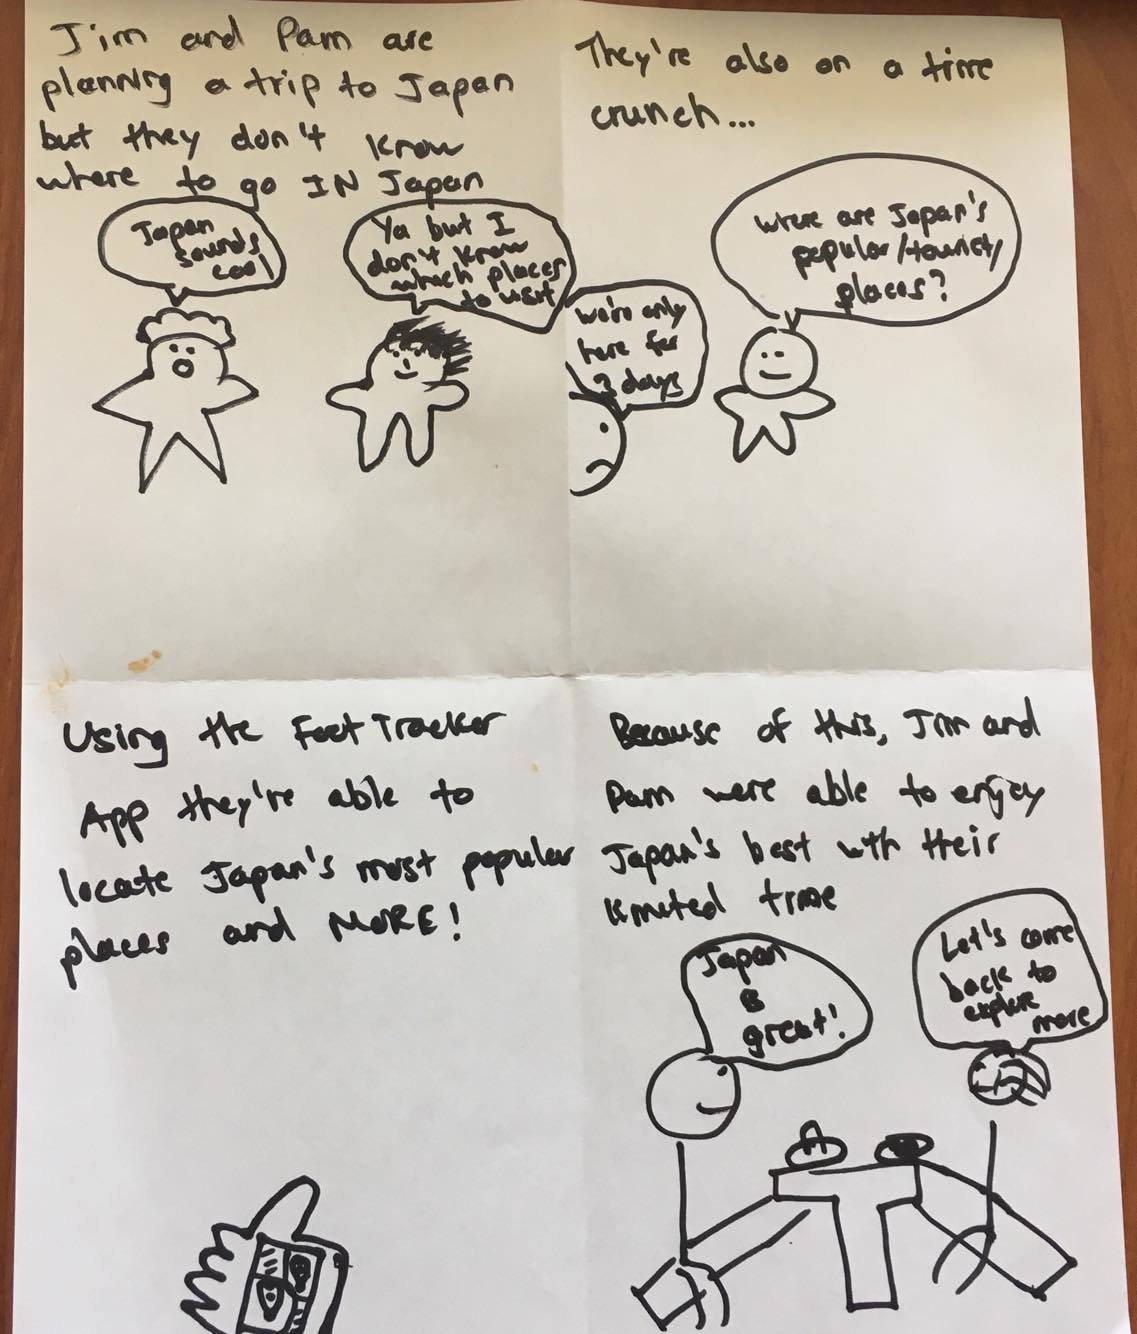 Jim and Pam are
planning a trip to Japan
but they don't know
where to go IN Japan
Japan
sounds
cool
Ya but I
don't know
which places
to visit
They're also on a time
crunch...
We're only
here for
3 days
Where are Japan's
popular/touristy
places?
Using the Feet Tracker
App they're able to
locate Japan's most popular
places and MORE!
Because of this, Jim and
Pam were able to enjoy
Japan's best with their
limited time
Japan
is
great!
Let's come
back to
explore
more